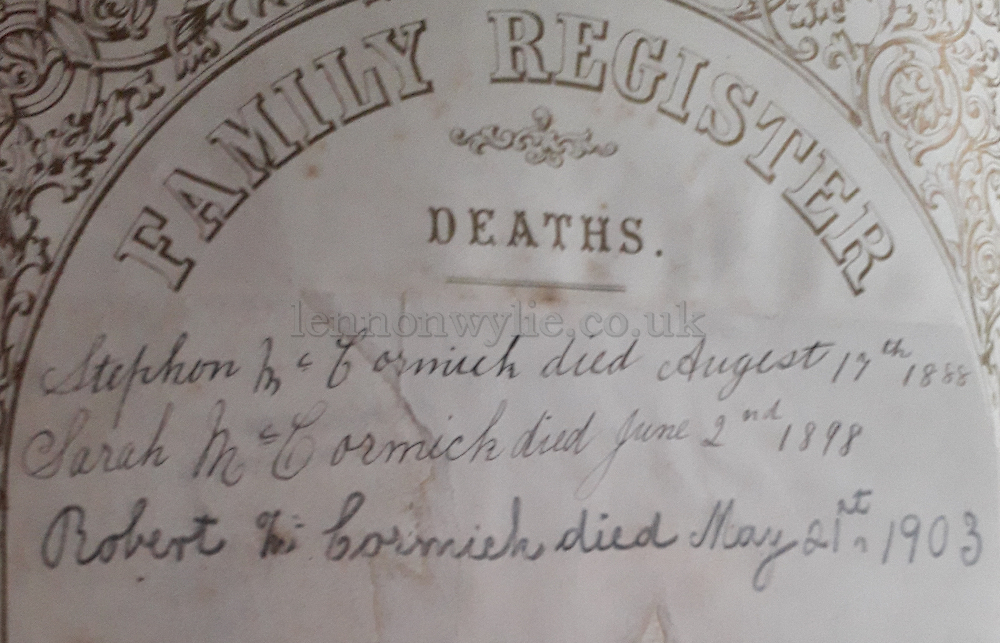 FAMILY REGISTER
DEATHS.
lennonwylie.co.uk
Stephon Mc Cormick died Augest 17th 1888
Sarah Mc Cormick died June 2nd 1898
Robert Mc Cormick died May 21st 1903